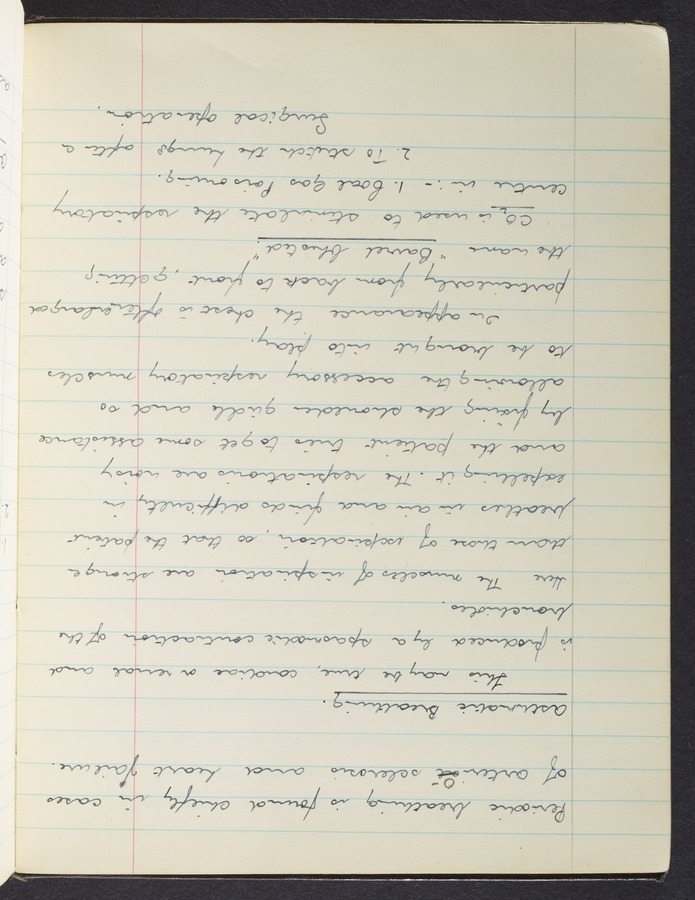 Periodic breathing is found chiefly in cases
of arterio sclerosis and heart failure.
Asthmatic Breathing.
This may be true, cardiac or renal and
is produced by a spasmodic contraction of the
bronchioles.
Here The muscles of inspiration are stronger
than those of expiration, so that the patient
breathes in air and finds difficulty in
expelling it. The respirations are noisy
and the patient tries to get some assistance
by fixing the shoulder girdle and so
allowing the accessory respiratory muscles
to be brought into play.
In appearance the chest is often enlarged
particularly from back to front, getting
the name "Barrel Chested"
CO2 is used to stimulate the respiratory
centre in:- 1. Coal Gas Poisoning.
2. To stretch the lungs after a
Surgical operation.